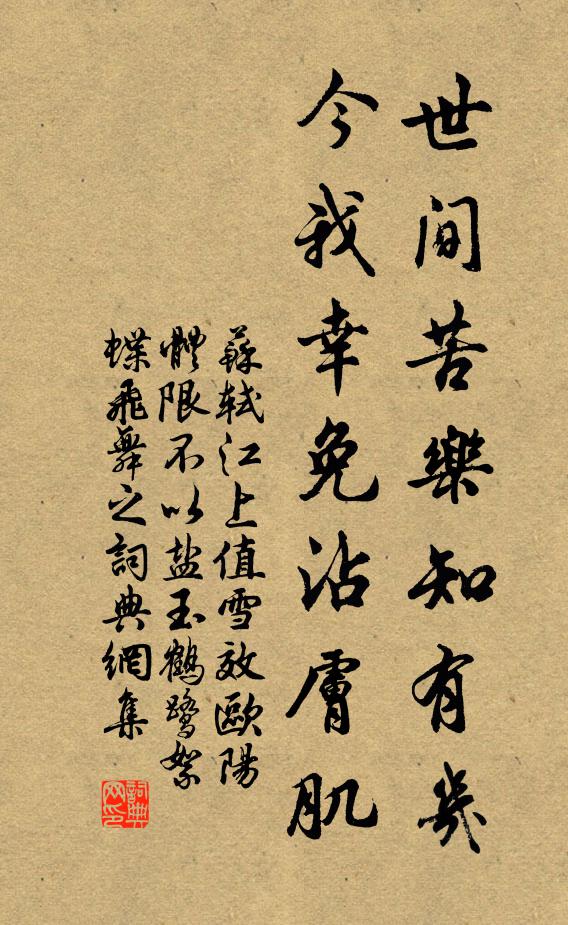 世間苦樂知有幾
今我幸免沾膚肌
蘇軾江上值雪效歐陽
體限不以盐玉鶴鷺絮
蝶飛舞之詞典網集
詞典网印